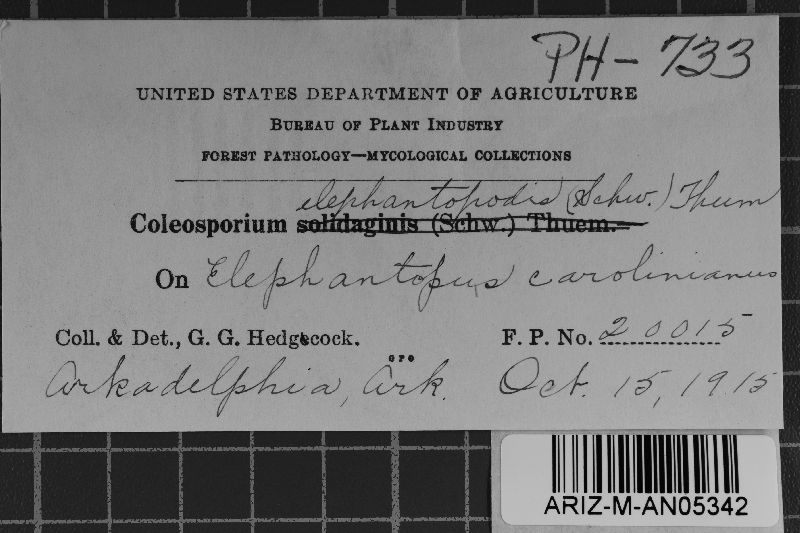 PH-733
UNITED STATES DEPARTMENT OF AGRICULTURE
BUREAU OF PLANT INDUSTRY
FOREST PATHOLOGY—MYCOLOGICAL COLLECTIONS
elephantopodis (Schw.) Thum
Coleosporium solidaginis (Schw.) Thuem.
On Elephantopus carolinianus
Coll. & Det., G. G. Hedgcock. F. P. No. 20015
GPO
Arkadelphia, Ark. Oct. 15, 1915
ARIZ-M-AN05342